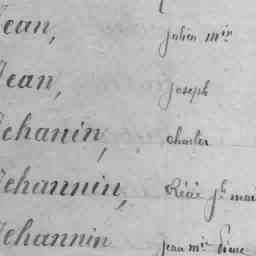 Jean, Julien Mie
Jean, Joseph
Jehanin, charles
Jehannin, René
Jehannin jean Mie